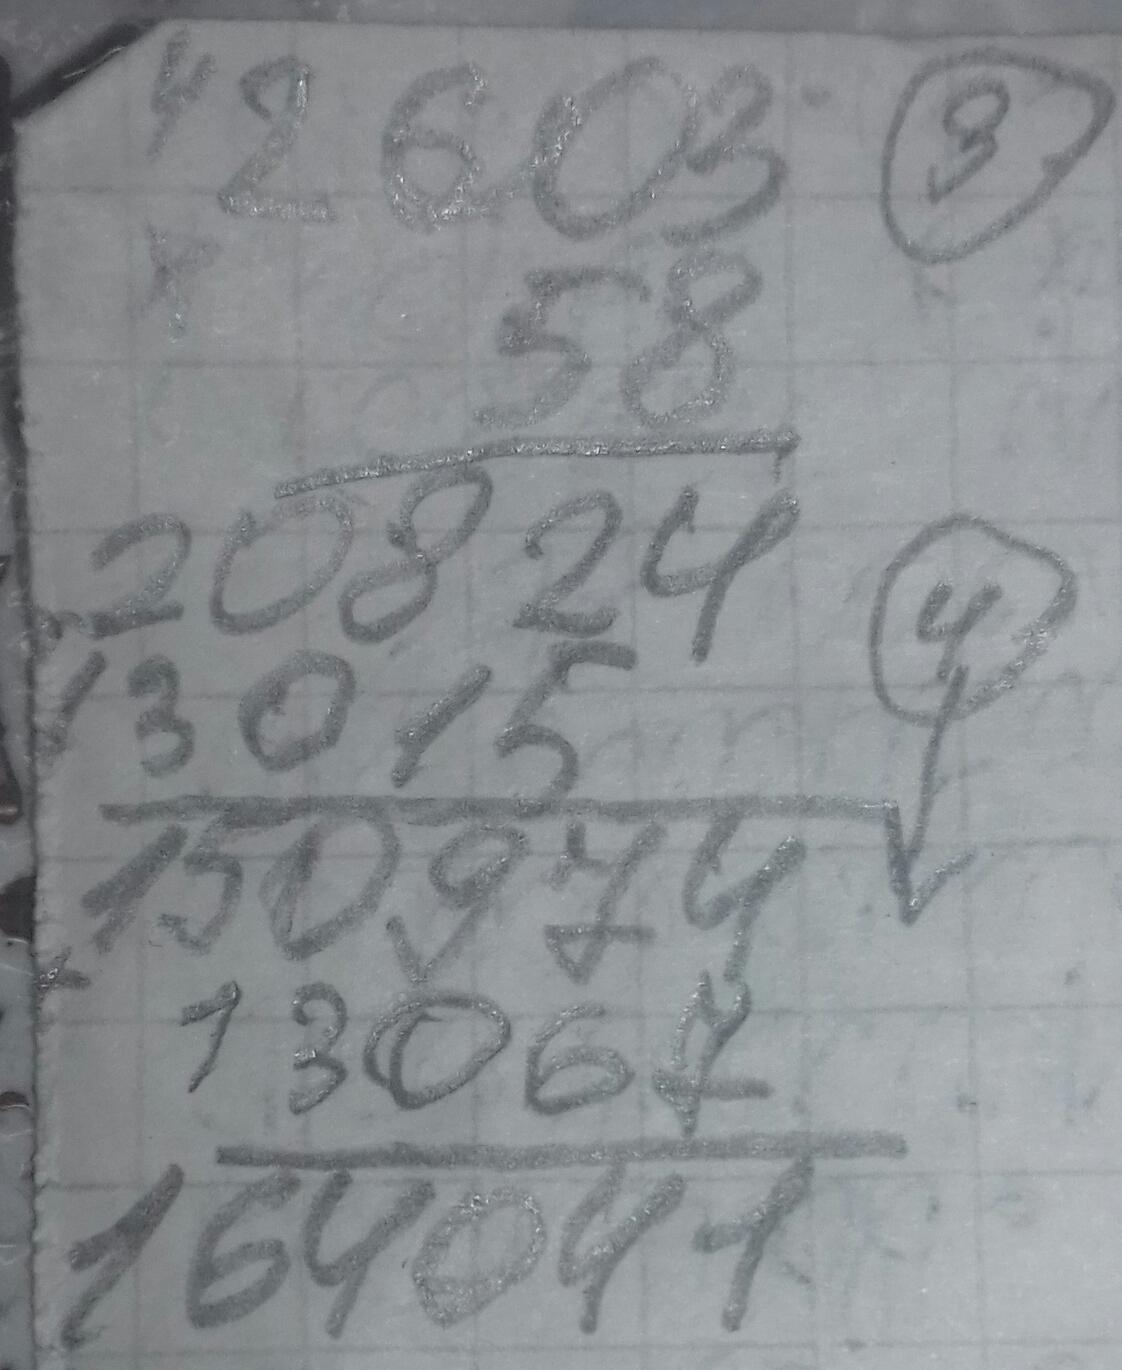 " 2603 3
x
58
20824 4
13015
150974
+
13067
164041